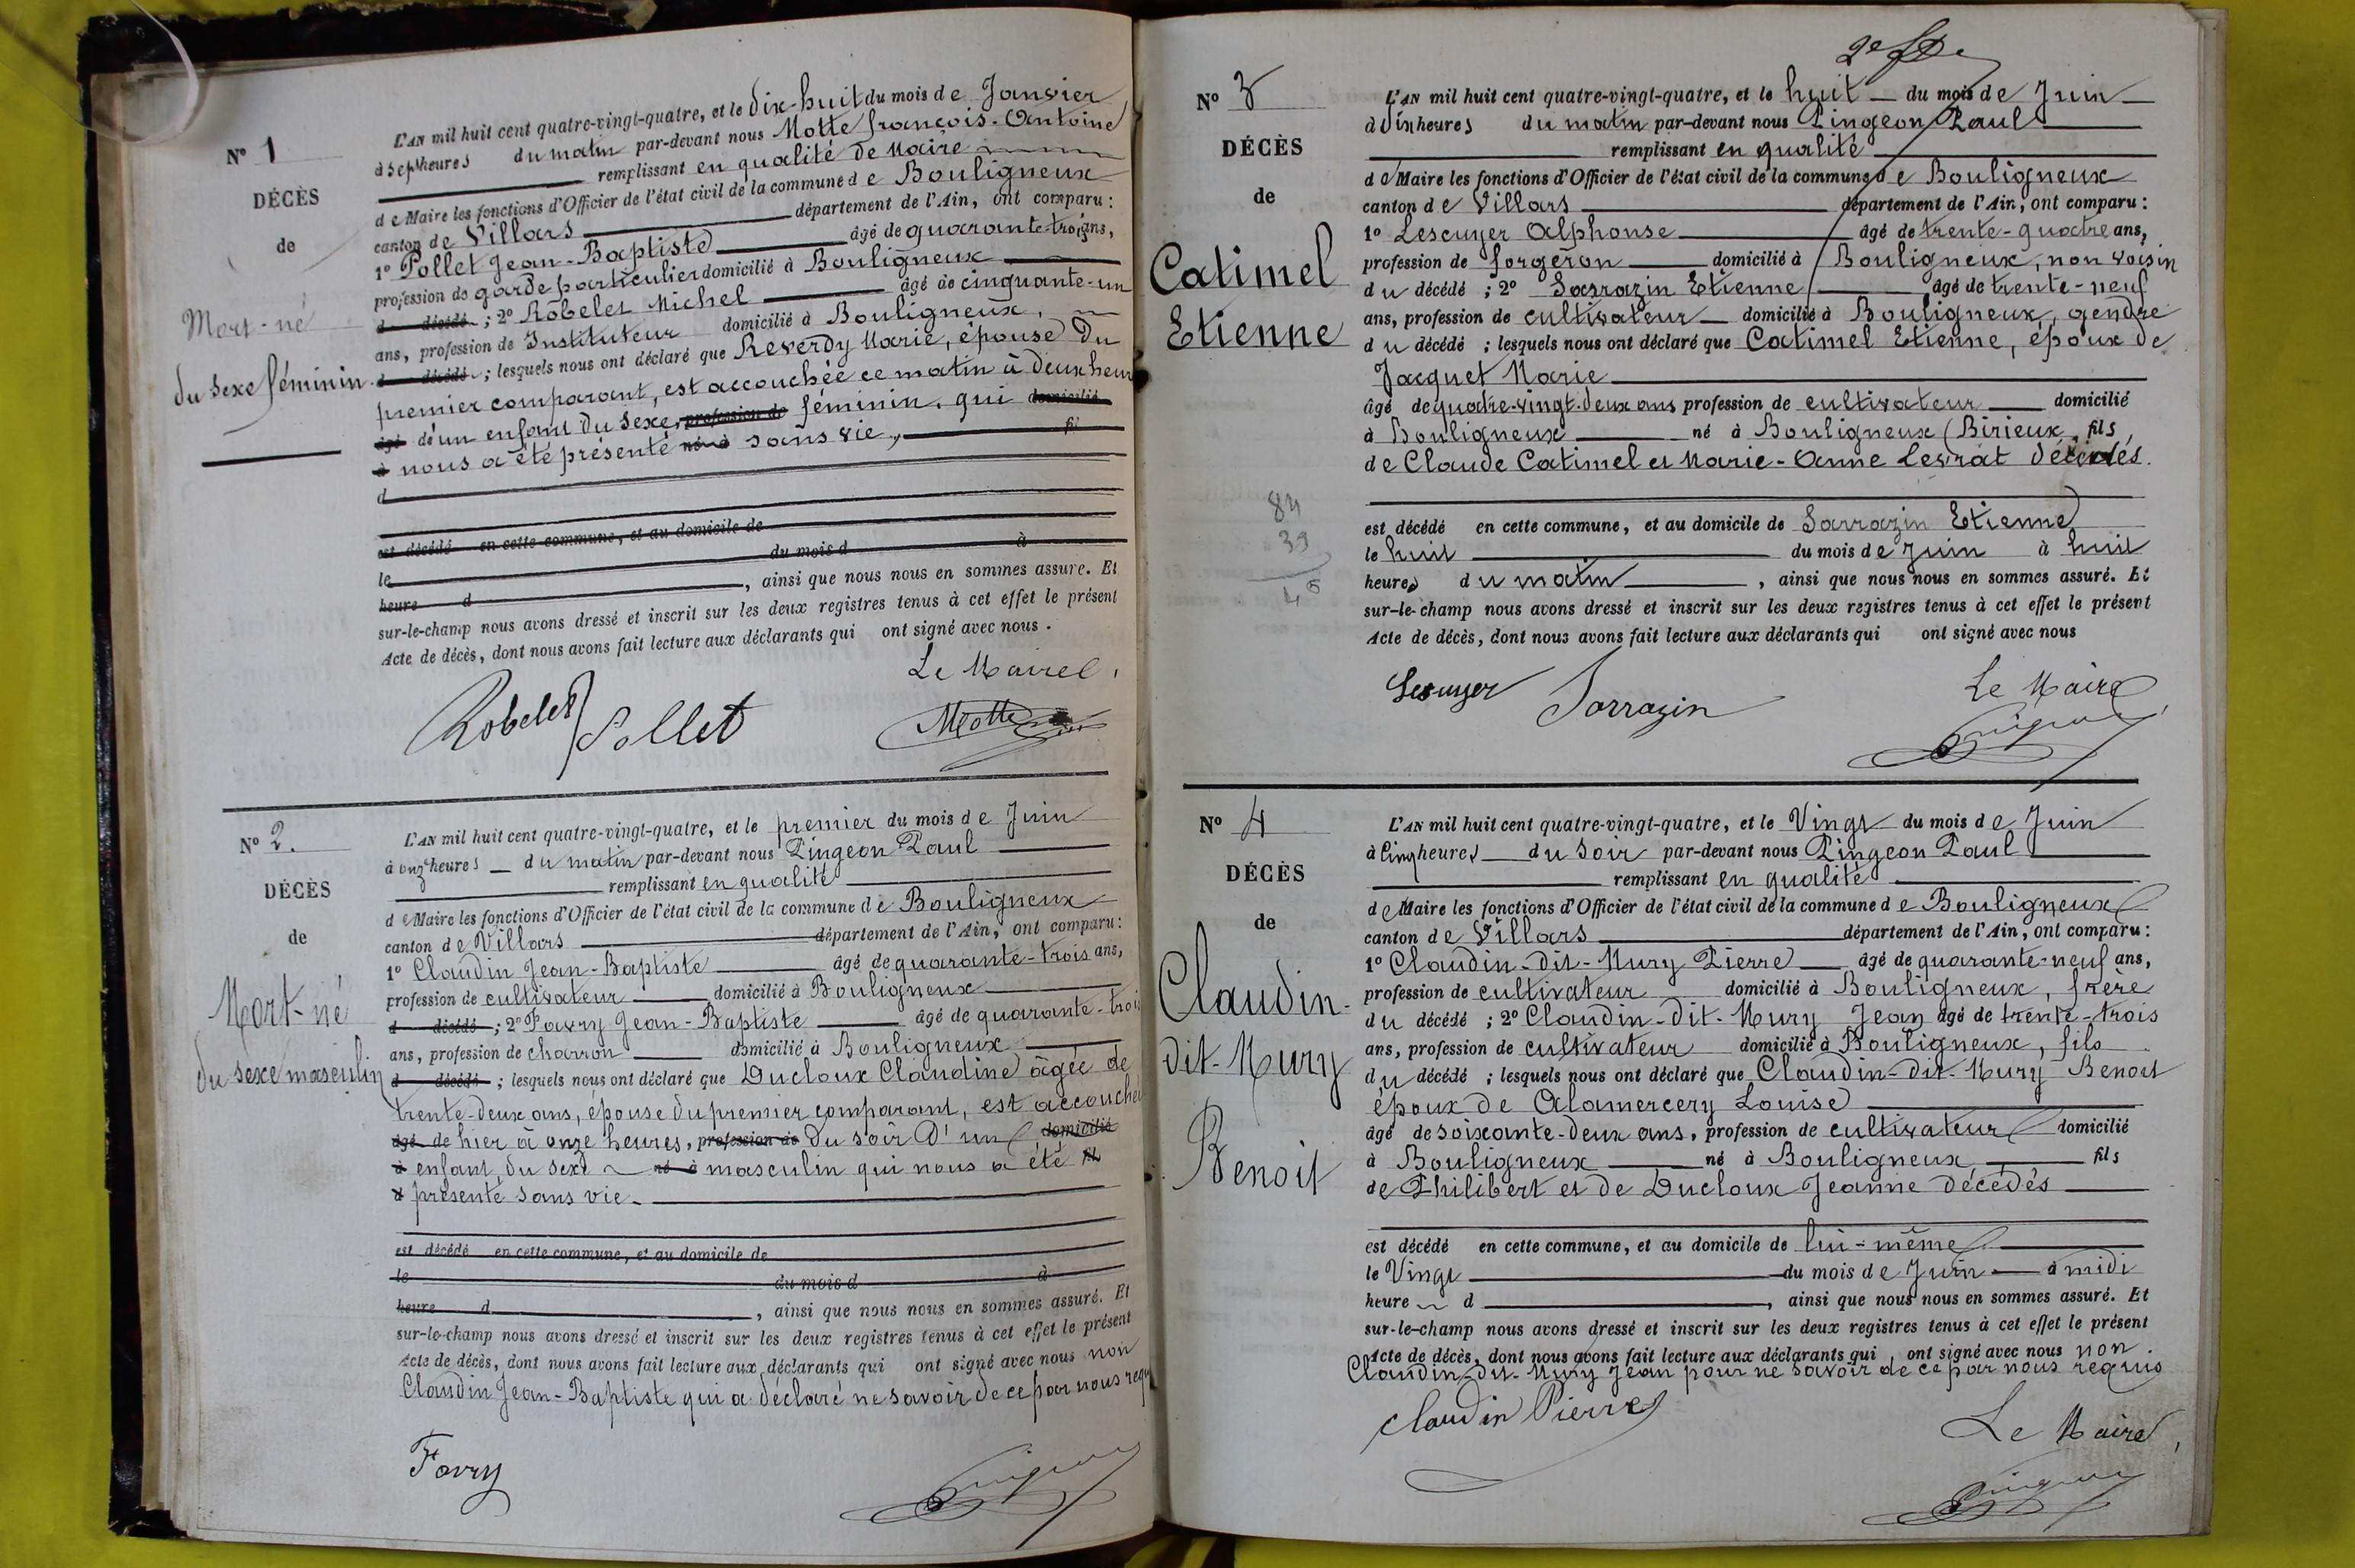 N° 1
DÉCÈS
de
Mort-né
du sexe féminin
L'AN mil huit cent quatre-vingt-quatre, et le dix-huit du mois de Janvier
à sept heures du matin par-devant nous Motte François-Antoine
remplissant en qualité de Maire
de Maire les fonctions d'Officier de l'état civil de la commune de Bouligneux
canton de Villars département de l'Ain, ont comparu :
1° Pollet Jean-Baptiste âgé de quarante-trois ans,
profession de garde particulier domicilié à Bouligneux
d décédé ; 2° Robelet Michel âgé de cinquante-un
ans, profession de Instituteur domicilié à Bouligneux,
d décédé ; lesquels nous ont déclaré que Reverdy Marie, épouse du
premier comparant, est accouchée ce matin à deux heur
âgé d'un enfant du sexe, profession de féminin, qui domicilié
à nous a été présenté né à sans vie, fil
d
est décédé en cette commune, et au domicile de
le du mois d à
heure d , ainsi que nous nous en sommes assuré. Et
sur-le-champ nous avons dressé et inscrit sur les deux registres tenus à cet effet le présent
Acte de décès, dont nous avons fait lecture aux déclarants qui ont signé avec nous.
Le Maire,
Robelet Pollet Motte
N° 2.
DÉCÈS
de
Mort-né
du sexe masculin
L'AN mil huit cent quatre-vingt-quatre, et le premier du mois de Juin
à onze heures du matin par-devant nous Pingeon Paul
remplissant en qualité
de Maire les fonctions d'Officier de l'état civil de la commune de Bouligneux
canton de Villars département de l'Ain, ont comparu :
1° Claudin Jean-Baptiste âgé de quarante-trois ans,
profession de cultivateur domicilié à Bouligneux
d décédé ; 2° Favry Jean-Baptiste âgé de quarante-trois
ans, profession de charron domicilié à Bouligneux
d décédé ; lesquels nous ont déclaré que Ducloux Claudine âgée de
trente-deux ans, épouse du premier comparant, est accouchée
âgé de hier à onze heures, profession de du soir d'un domicilié
à enfant du sexe né à masculin qui nous a été fil
d présenté sans vie.
est décédé en cette commune, et au domicile de
le du mois d à
heure d , ainsi que nous nous en sommes assuré. Et
sur-le-champ nous avons dressé et inscrit sur les deux registres tenus à cet effet le présent
Acte de décès, dont nous avons fait lecture aux déclarants qui ont signé avec nous non
Claudin Jean-Baptiste qui a déclaré ne savoir de ce par nous requ
Favry
N° 3
DÉCÈS
de
Catimel
Etienne
84
39
45
L'AN mil huit cent quatre-vingt-quatre, et le huit du mois de Juin
à dix heures du matin par-devant nous Pingeon Paul
remplissant en qualité
de Maire les fonctions d'Officier de l'état civil de la commune de Bouligneux
canton de Villars département de l'Ain, ont comparu :
1° Lescuyer Alphonse âgé de trente-quatre ans,
profession de forgeron domicilié à Bouligneux, non voisin
du décédé ; 2° Sarrazin Etienne âgé de trente-neuf
ans, profession de cultivateur domicilié à Bouligneux, gendre
du décédé ; lesquels nous ont déclaré que Catimel Etienne, époux de
Jacquet Marie
âgé de quatre-vingt-deux ans profession de cultivateur domicilié
à Bouligneux né à Bouligneux (Birieux, fils,
de Claude Catimel et Marie-Anne Levrat décédés.
est décédé en cette commune, et au domicile de Sarrazin Etienne
le huit du mois de Juin à huit
heures du matin , ainsi que nous nous en sommes assuré. Et
sur-le-champ nous avons dressé et inscrit sur les deux registres tenus à cet effet le présent
Acte de décès, dont nous avons fait lecture aux déclarants qui ont signé avec nous
Lescuyer Sarrazin Le Maire,
N° 4
DÉCÈS
de
Claudin-
dit-Mury
Benoit
L'AN mil huit cent quatre-vingt-quatre, et le Vingt du mois de Juin
à Cinq heures du soir par-devant nous Pingeon Paul
remplissant en qualité
de Maire les fonctions d'Officier de l'état civil de la commune de Bouligneux
canton de Villars département de l'Ain, ont comparu :
1° Claudin-dit-Mury Pierre âgé de quarante-neuf ans,
profession de cultivateur domicilié à Bouligneux, frère
du décédé ; 2° Claudin-dit-Mury Jean âgé de trente-trois
ans, profession de cultivateur domicilié à Bouligneux, fils
du décédé ; lesquels nous ont déclaré que Claudin-dit-Mury Benoit
époux de Alamercery Louise
âgé de soixante-deux ans, profession de cultivateur domicilié
à Bouligneux né à Bouligneux fils
de Philibert et de Ducloux Jeanne décédés
est décédé en cette commune, et au domicile de lui-même
le Vingt du mois de Juin à midi
heure d , ainsi que nous nous en sommes assuré. Et
sur-le-champ nous avons dressé et inscrit sur les deux registres tenus à cet effet le présent
Acte de décès, dont nous avons fait lecture aux déclarants qui ont signé avec nous non
Claudin-dit-Mury Jean pour ne savoir de ce par nous requis
Claudin Pierre
Le Maire,